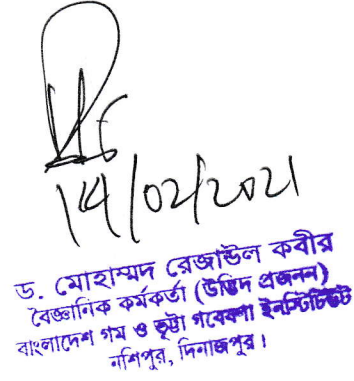 14/02/2021
ড. মোহাম্মদ রেজাউল কবীর
বৈজ্ঞানিক কর্মকর্তা (উদ্ভিদ প্রজনন)
বাংলাদেশ গম ও ভূট্টা গবেষণা ইনস্টিটিউট
নশিপুর, দিনাজপুর।